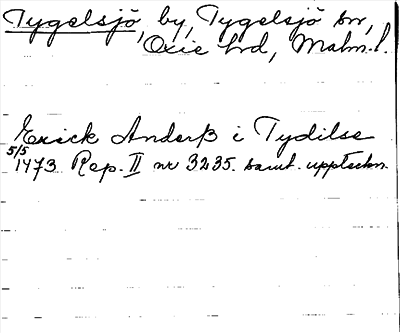 Tygelsjö, by, Tygelsjö sn,
Oxie hd, Malm. l.
Erick Anderß i Tydilse
5/5 1473 Rep. II nr 3235. samt. uppteckn.